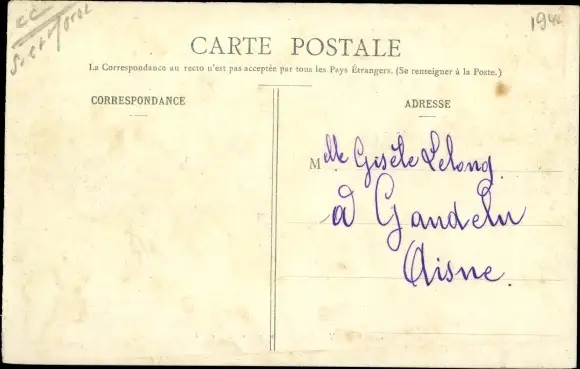 CARTE POSTALE
La Correspondance au recto n'est pas acceptée par tous les Pays Étrangers. (Se renseigner à la Poste.)
CORRESPONDANCE
ADRESSE
Melle Gisèle Lelong
à Gandelu
Aisne.